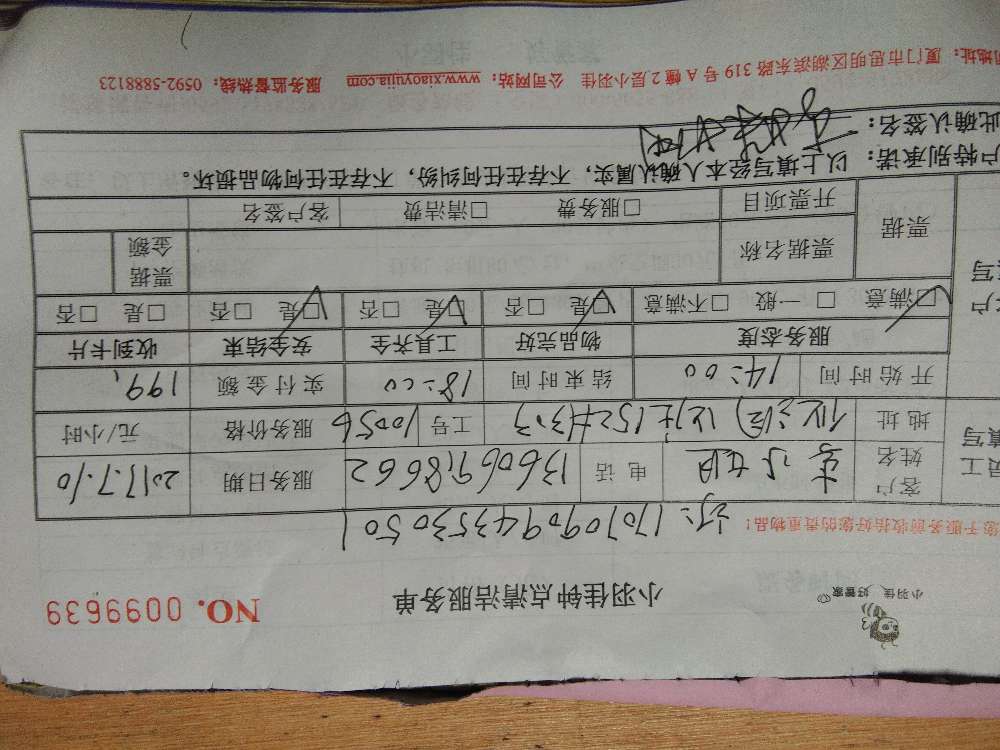 小羽佳 好管家
小羽佳钟点清洁服务单
NO. 0099639
于服务前收拾好您的贵重物品!
1707094353050 1
客户姓名 李小姐 电话 13606918662 服务日期 2017.7.10
地址 工号 10056 服务价格 元/小时
开始时间 14:00 结束时间 18:00 实付金额 199
服务态度 物品完好 工具齐全 安全结束 收到卡片
☑满意 □一般 □不满意 ☑是 □否 ☑是 □否 ☑是 □否 □是 □否
票据 票据名称 票据金额
开票项目 □服务费 □清洁费 客户签名
户特别承诺: 以上填写经本人确认属实,不存在任何纠纷,不存在任何物品损坏。
此确认签名:
地址: 厦门市思明区湖滨东路 319 号 A 幢 2 层小羽佳 公司网站: www.xiaoyujia.com 服务监督热线: 0592-5888123